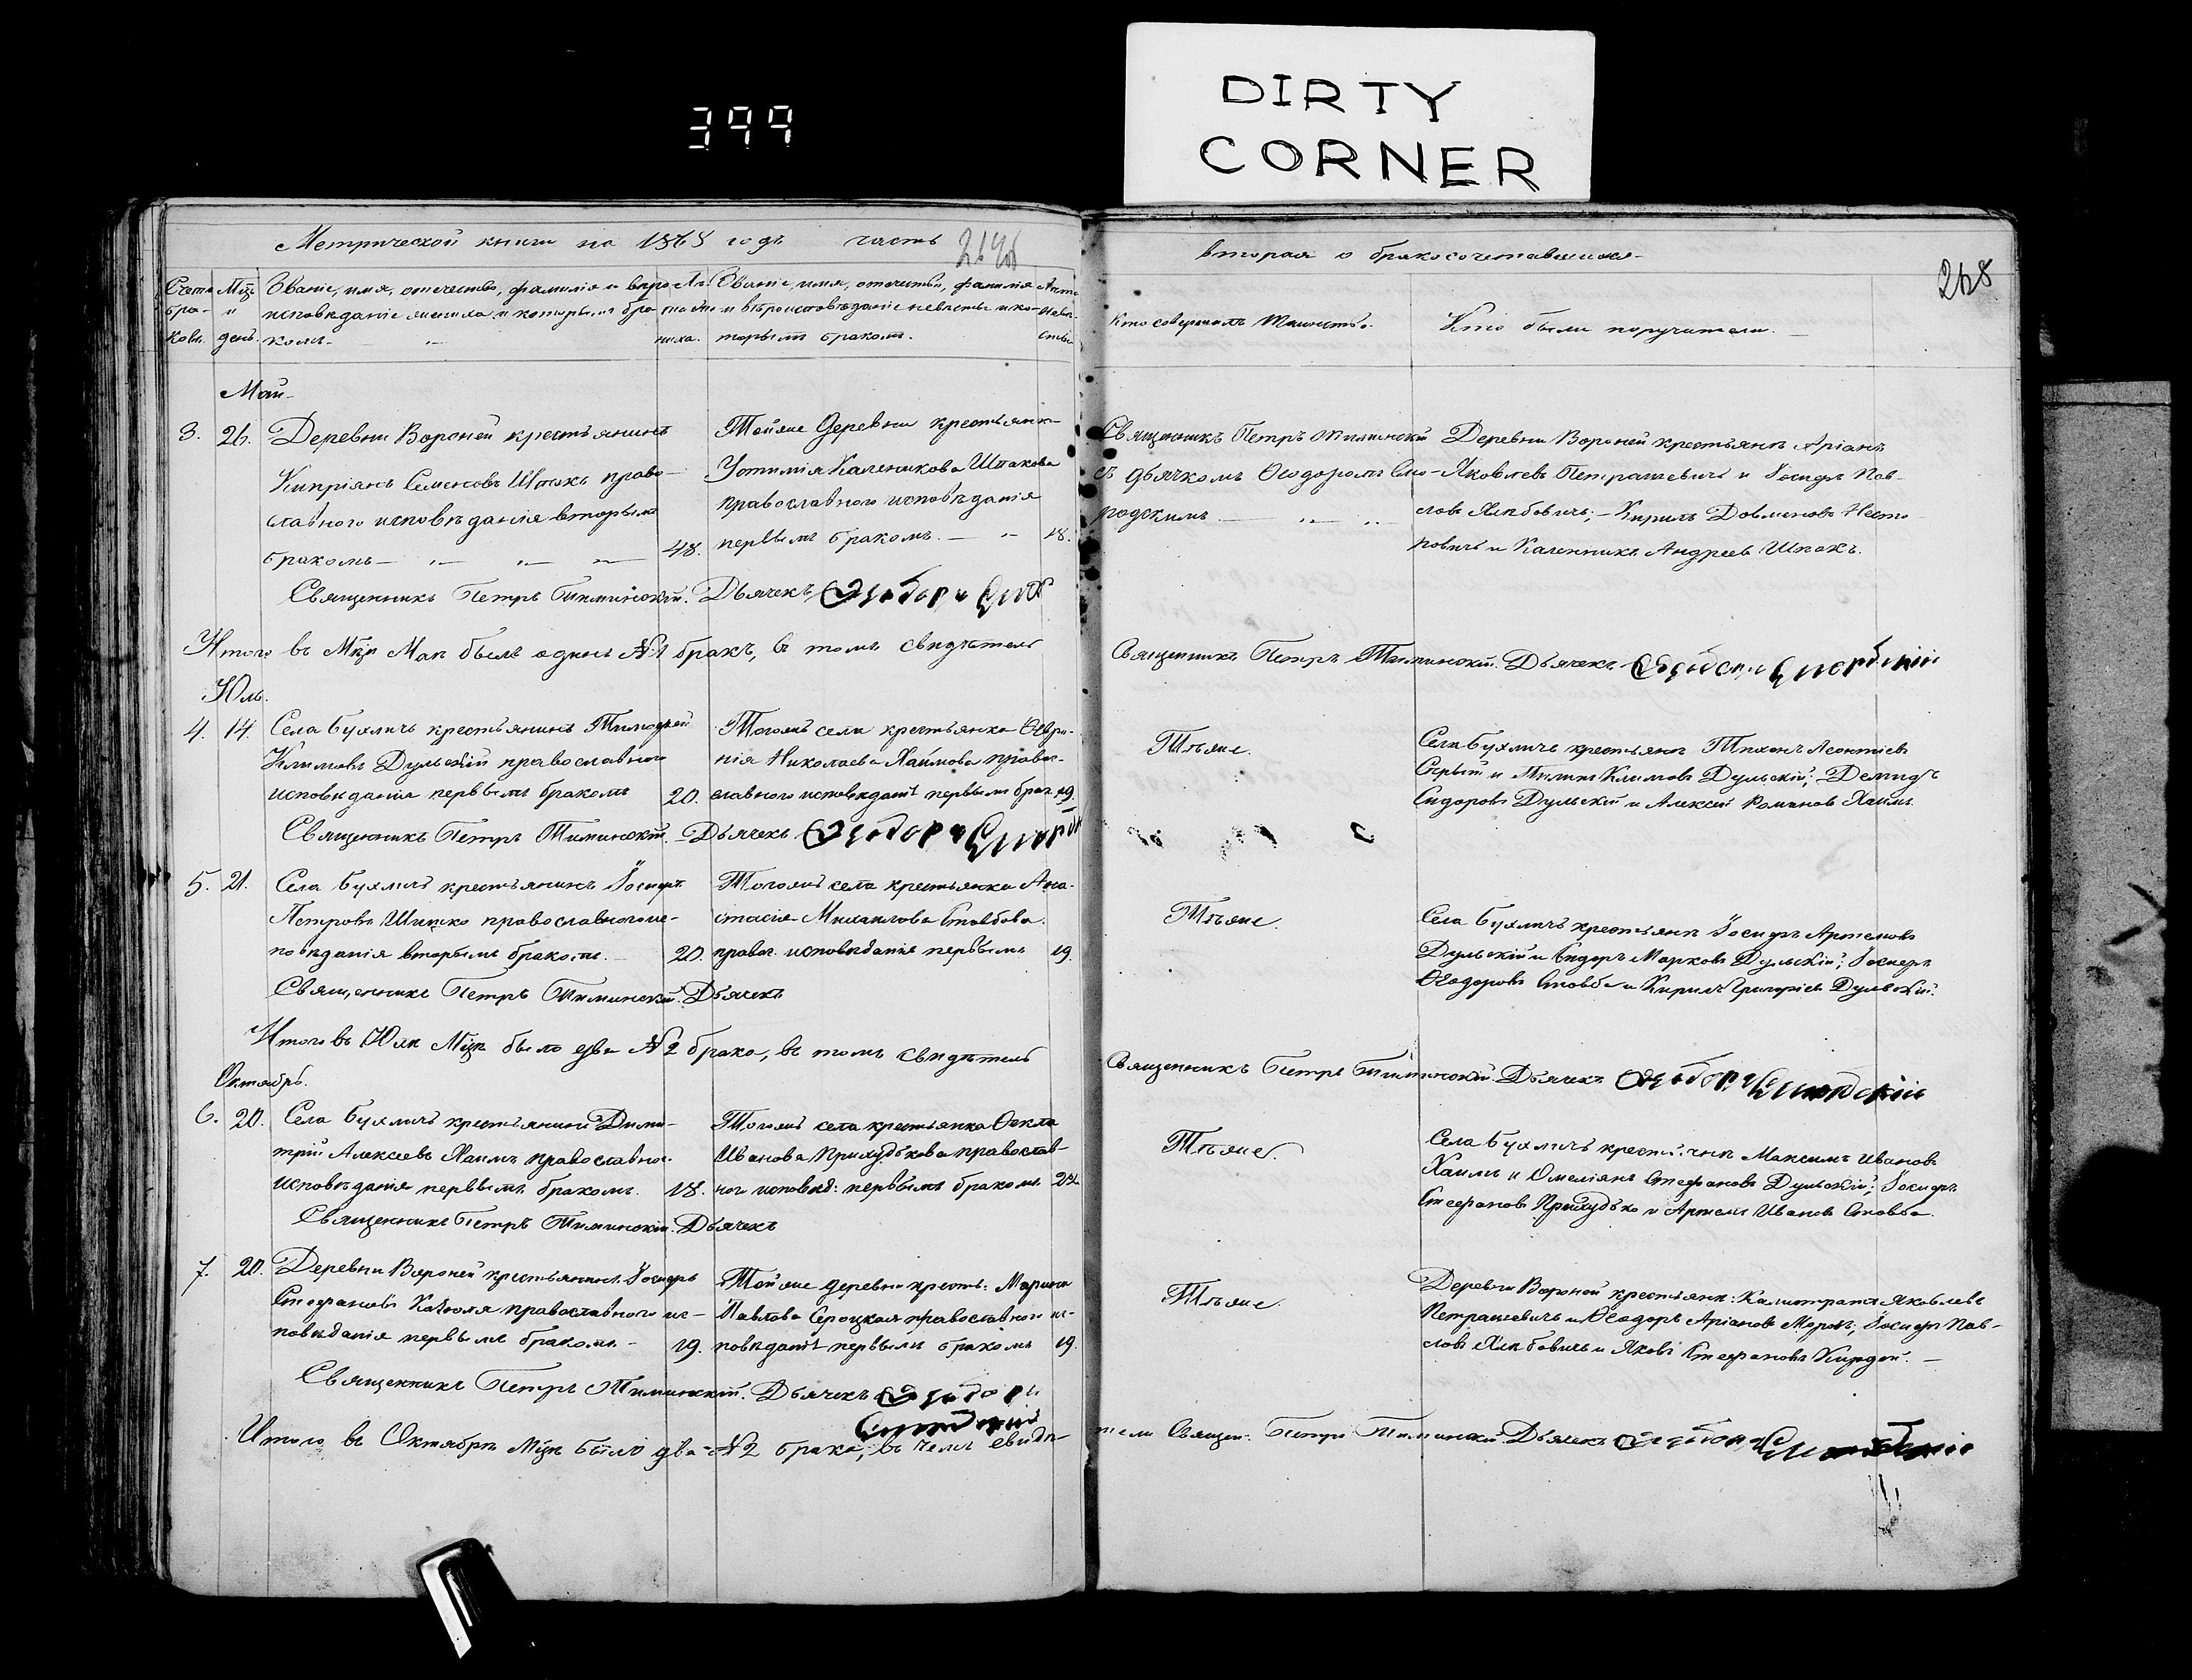 399
DIRTY
CORNER
Метрической книги на 1868 годъ часть
вторая о бракосочетавшихся
268
Счетъ Мцъ Званіе, имя, отечество, фамилія и вѣро Лѣ. Званіе, имя, отечество, фамилія Лѣта
бра- и исповѣданіе жениха и которымъ бра- и вѣроисповѣданіе невѣсты и ко- невѣ-
ковъ. день. комъ. ниха. торымъ бракомъ. сты
Кто совершалъ Таинство. Кто были поручители.
Май
3. 26. Деревни Вороней крестьянинъ
Кипріянъ Семеновъ Шпакъ право-
славного исповѣданія вторымъ
бракомъ 48.
Тойже деревни крестьянка
Устимія Каленикова Шпакова
православного исповѣданія
первымъ бракомъ. 18.
Священникъ Петръ Тиминскій
съ дьячкомъ Ѳеодоромъ Смо-
родскимъ
Деревни Вороней крестьяне Аріанъ
Яковлевъ Петрашевичъ и Іосифъ Пав-
ловъ Якобовичъ; Кирилъ Довменовъ Несте
ровичъ и Каленникъ Андреевъ Шпакъ.
Священникъ Петръ Тиминскій. Дьячекъ Ѳеодоръ
Итого въ Мцѣ Маѣ былъ одинъ №1 бракъ, въ томъ свидѣтель
Священникъ Петръ Тиминскій. Дьячекъ Ѳеодоръ Смородскій
Юль.
4. 14. Села Бухличъ крестьянинъ Тимоѳей
Климовъ Дульскій православного
исповѣданія первымъ бракомъ 20.
Тогожъ села крестьянка Ѳеврo-
нія Николаева Хаимова право-
славного исповѣданія первымъ брак. 19.
Тѣже.
Села Бухличъ крестьяне Тихонъ Леонтіевъ
Сѣрый и Климовъ Дульскій; Демидъ
Сидоровъ Дульскій и Алексѣй Романовъ Хаимъ.
Священникъ Петръ Тиминскій. Дьячекъ Ѳеодоръ
5. 21. Села Бухличъ крестьянинъ Іосифъ
Петровъ Шишко православного ис-
повѣданія вторымъ бракомъ. 20.
Тогожъ села крестьянка Ана-
стасія Михаилова Стовбова
правос. исповѣданія первымъ 19.
Тѣже.
Села Бухличъ крестьяне Іосифъ Артемовъ
Дульскій и Сидоръ Марковъ Дульскій; Іосифъ
Ѳеодоровъ Стовба и Кирилъ Григоріевъ Дульскій.
Священникъ Петръ Тиминскій. Дьячекъ
Итого въ Юлѣ Мцѣ было два №2 брака, въ томъ свидѣтель
Священникъ Петръ Тиминскій. Дьячекъ Ѳеодоръ Смородскій
Октябрь.
6. 20. Села Бухличъ крестьянинъ Дими-
трій Алексѣевъ Хаимъ православного
исповѣданія первымъ бракомъ. 18.
Тогожъ села крестьянка Ѳекла
Иванова Прихудькова православ-
ног исповѣд: первымъ бракомъ 22
Тѣже.
Села Бухличъ Максимъ Ивановъ
Хаимъ и Омеліянъ Стефановъ Дульскій; Іосифъ
Стефановъ Прихудько и Артемъ Ивановъ Стовба.
Священникъ Петръ Тиминскій. Дьячекъ
7. 20. Деревни Вороней крестьянинъ Іосифъ
Стефановъ православного ис-
повѣданія первымъ бракомъ 19.
Тойже деревни кресть: Марина
Павлова Сероцкая православног ис-
повѣданія первымъ бракомъ 19.
Тѣже.
Деревни Вороней крестьяне: Калистратъ Яковлевъ
Петрашевичъ и Ѳеодоръ Аріановъ Іосифъ Пав-
ловъ Якобовичъ и Яковъ Стефановъ
Священникъ Петръ Тиминскій. Дьячекъ Ѳеодоръ
Смородскій
Итого въ Октябрѣ Мцѣ было два №2 брака, въ чемъ свидѣ-
тели Священ: Петръ Тиминскій Дьячекъ Ѳеодоръ Смородскій